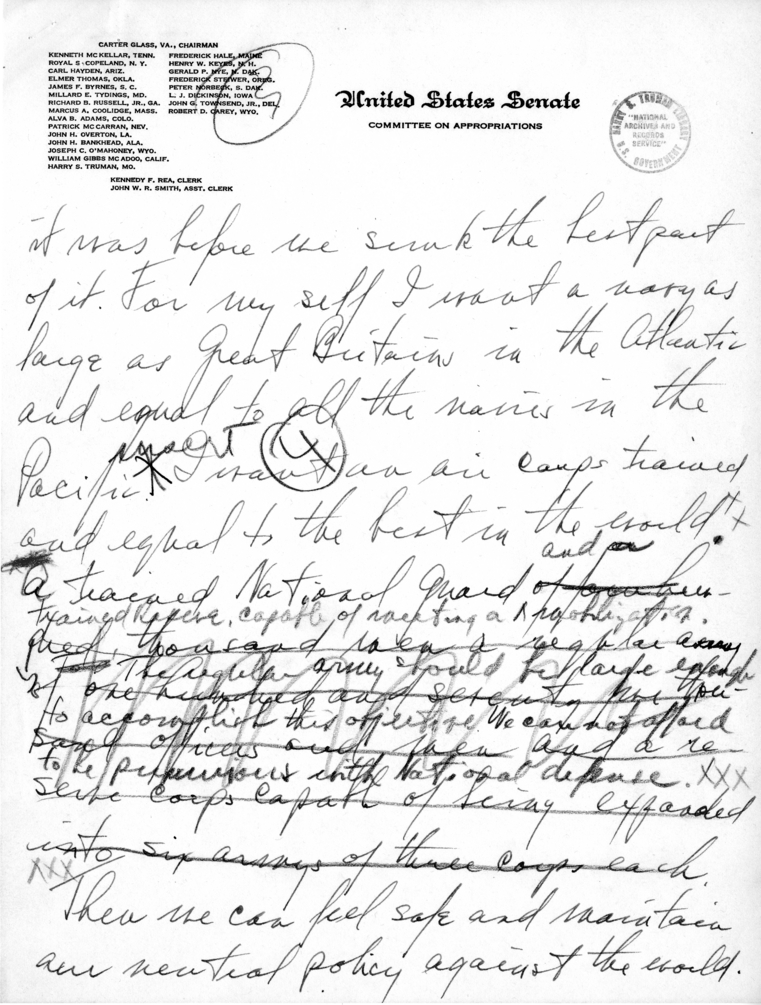 CARTER GLASS, VA., CHAIRMAN
KENNETH MCKELLAR, TENN.
ROYAL S. COPELAND, N. Y.
CARL HAYDEN, ARIZ.
ELMER THOMAS, OKLA.
JAMES F. BYRNES, S. C.
MILLARD E. TYDINGS, MD.
RICHARD B. RUSSELL, JR., GA.
MARCUS A. COOLIDGE, MASS.
ALVA B. ADAMS, COLO.
PATRICK MCCARRAN, NEV.
JOHN H. OVERTON, LA.
JOHN H. BANKHEAD, ALA.
JOSEPH C. O'MAHONEY, WYO.
WILLIAM GIBBS MCADOO, CALIF.
HARRY S. TRUMAN, MO.
FREDERICK HALE, MAINE
HENRY W. KEYES, N. H.
GERALD P. NYE, N. DAK.
FREDERICK STEIWER, OREG.
PETER NORBECK, S. DAK.
L. J. DICKINSON, IOWA
JOHN G. TOWNSEND, JR., DEL.
ROBERT D. CAREY, WYO.
KENNEDY F. REA, CLERK
JOHN W. R. SMITH, ASST. CLERK
5
United States Senate
COMMITTEE ON APPROPRIATIONS
HARRY S. TRUMAN LIBRARY
"NATIONAL
ARCHIVES AND
RECORDS
SERVICE"
U.S. GOVERNMENT
it was before we sunk the best part
of it. For my self I want a navy as
large as Great Britains in the Atlantic
and equal to all the navies in the
insert X
Pacific. I want an air corps trained
and equal to the best in the world. X
and a
A trained National Guard of four hun-
trained Reserve, capable of meeting a
dred thousand men a regular army
The regular army should be large enough
of one hundred and seventy five thou-
to accomplish this objective We can not afford
sand officers and men and a re-
to be penurious with National defense. XXX
serve corps capable of being expanded
into six armys of three corps each.
XXX
Then we can feel safe and maintain
our neutral policy against the world.